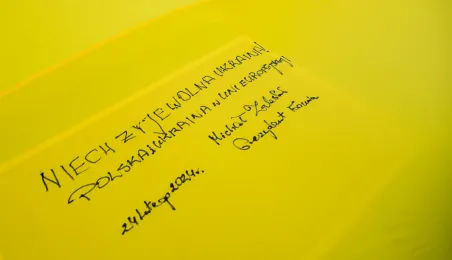 NIECH ŻYJE WOLNA UKRAINA!
POLSKA I UKRAINA W UNII EUROPEJSKIEJ!
Michał
Prezydent
24 lutego 2024 r.